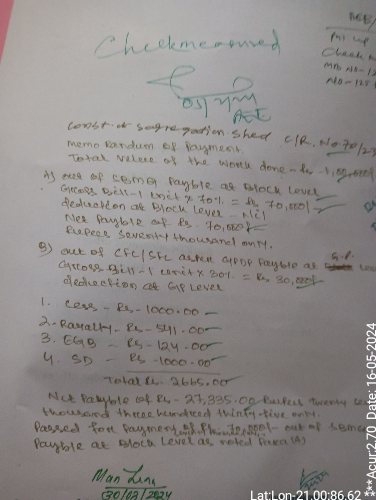 Checkmeasured
Const. of segregation shed C/R. No 70/23
memo Random of Payment.
Total value of the work done - Rs 1,00,000/-
A) out of SBMG Payble at Block Level
Gross Bill - 1 unit x 70% = Rs 70,000/-
deduction at Block Level - Nil
Net Payble of Rs. 70,000/-
Rupees Seventy thousand only.
B) out of CFC/SFC as per GPDP Payble at G.P.
Gross Bill - 1 unit x 30% = Rs 30,000/-
deduction at GP Level
1. Cess - Rs - 1000.00
2. Royalty - Rs - 541.00
3. EGB - Rs - 124.00
4. SD - Rs - 1000.00
Total Rs. 2665.00
Net Payble of Rs - 27,335.00 Rupees Twenty
thousand three hundred thirty five only.
Passed for Payment of Rs. 70,000/- out of SBMG
Payble at Block Level as noted Para (A)
30/03/2024
Lat:Lon-21.00:86.62
***Acur2.70 Date: 16-05-2024